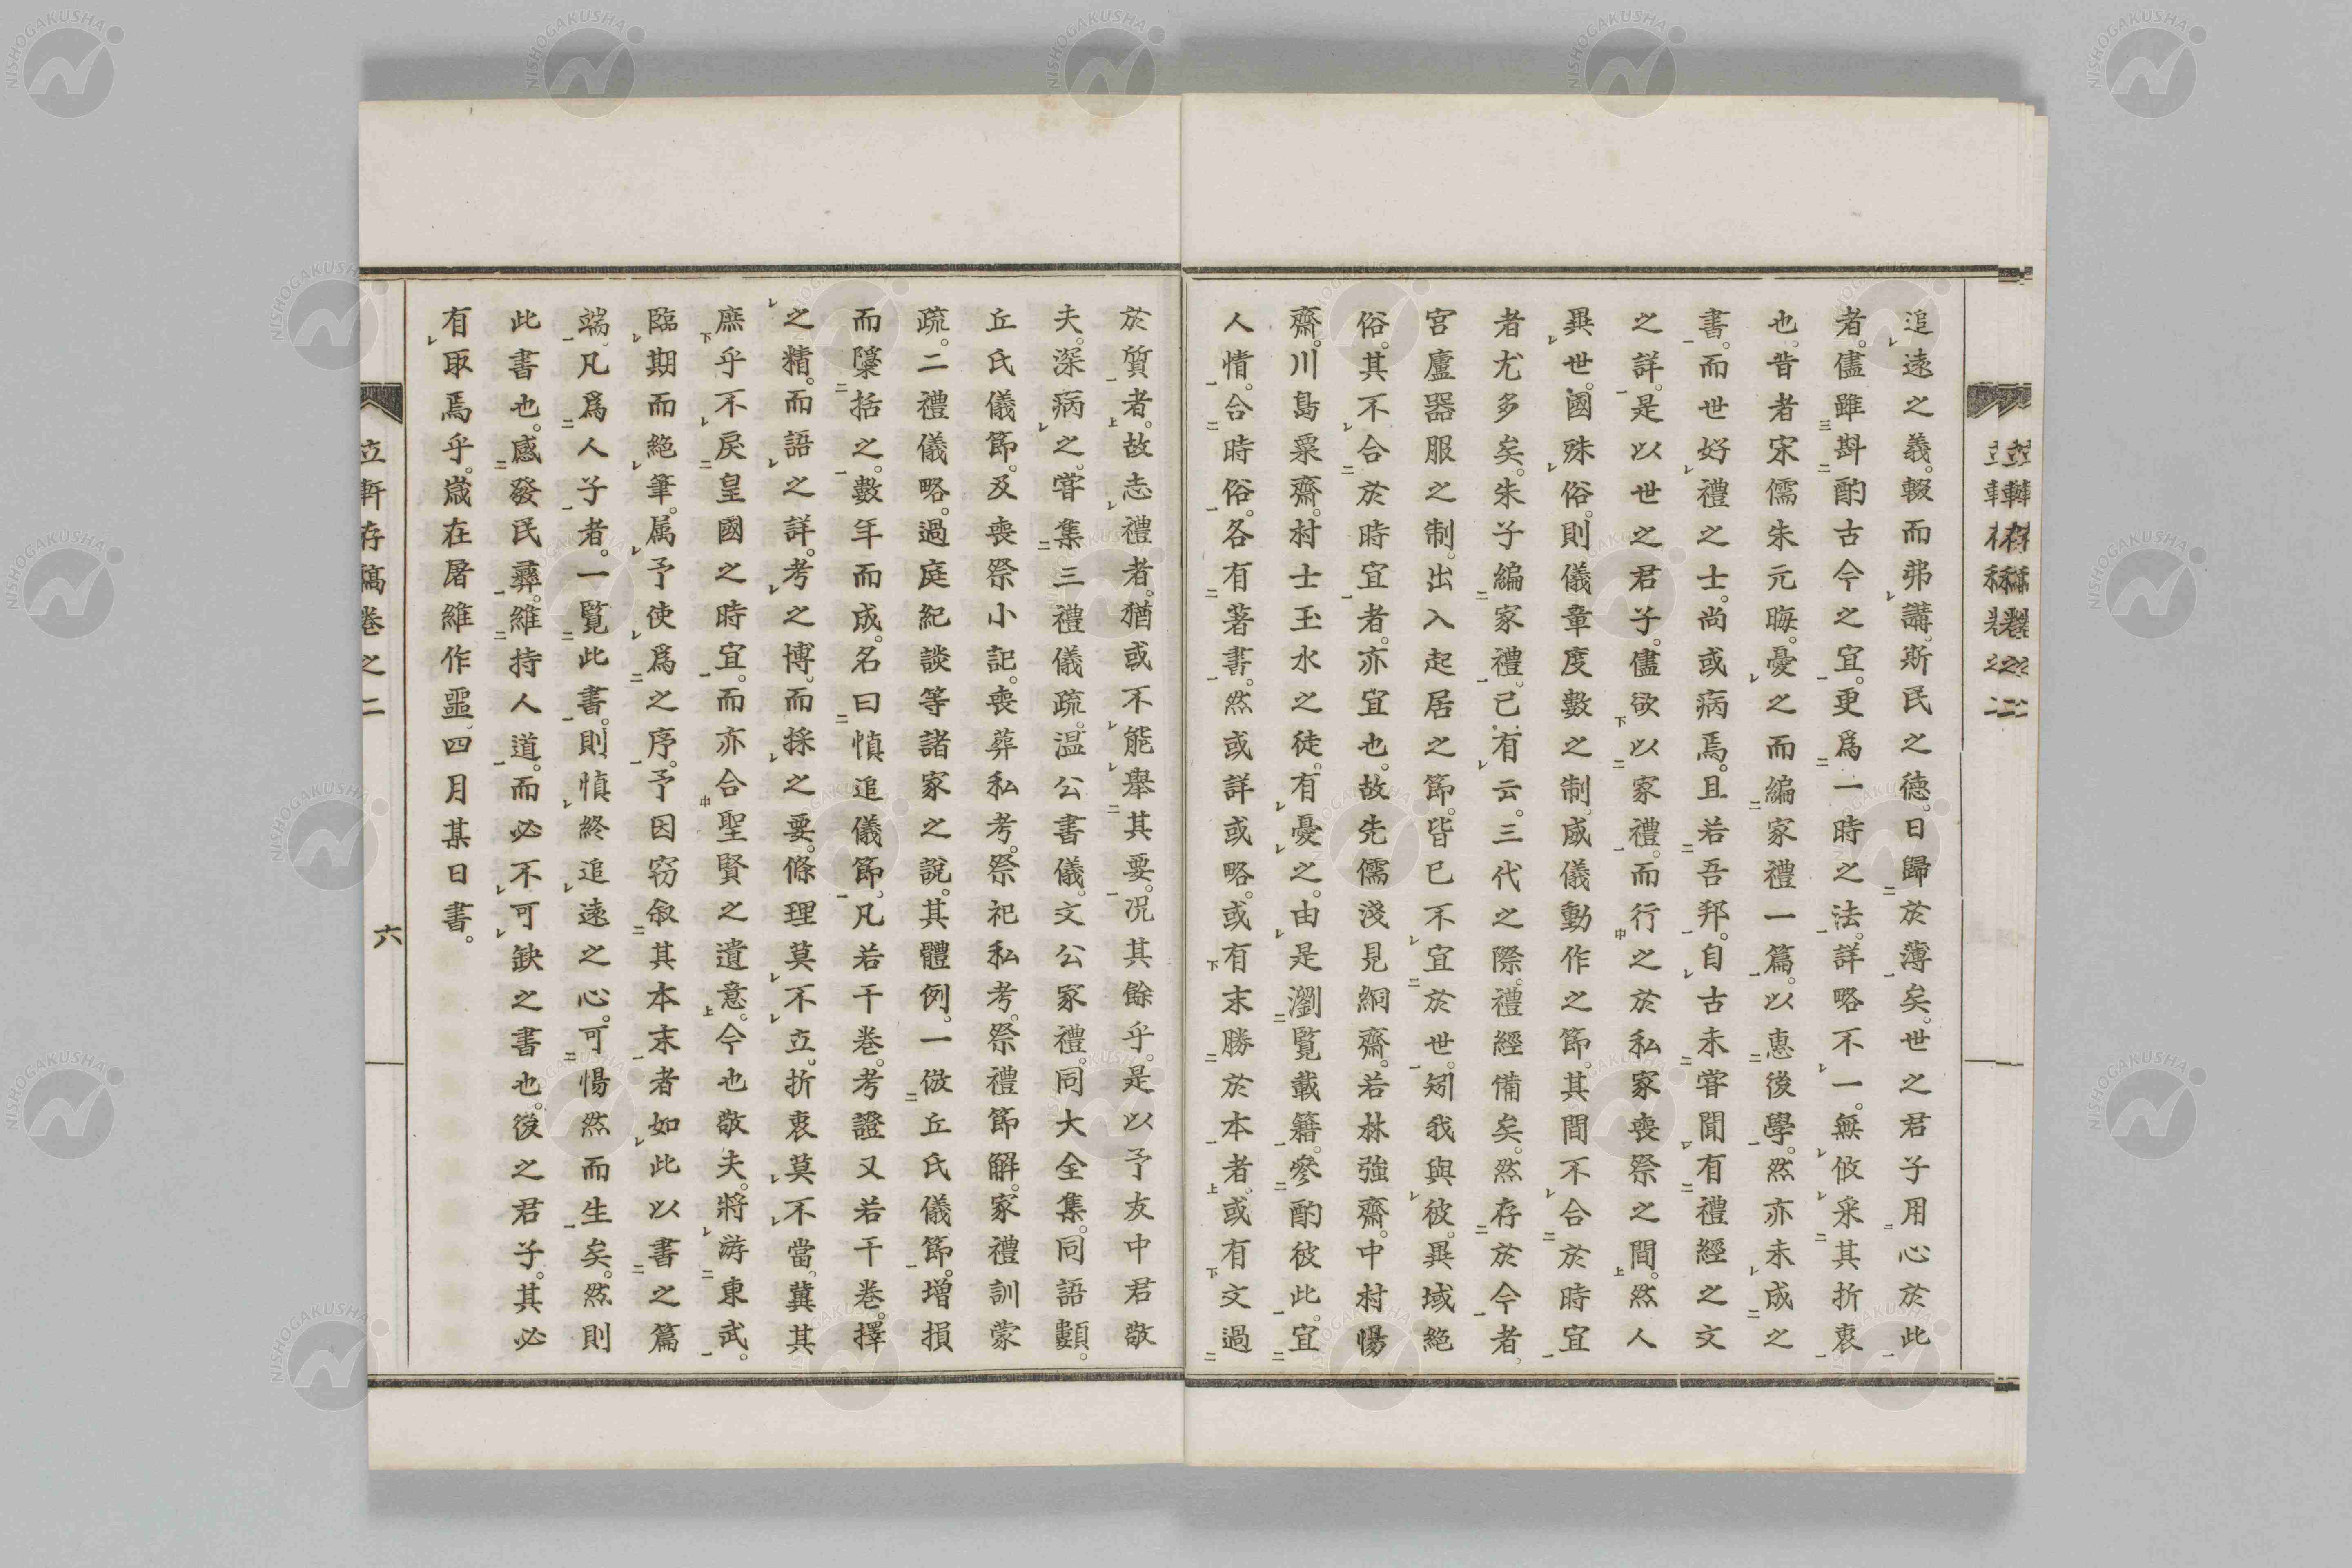 追遠之義。輟而弗講。斯民之德。日歸於薄矣。世之君子用心於此
者。儘雖斟酌古今之宜。更爲一時之法。詳略不一。無攸采其折衷
也。昔者宋儒朱元晦。憂之而編家禮一篇。以惠後學。然亦未成之
書。而世好禮之士。尚或病焉。且若吾邦。自古未嘗聞有禮經之文
之詳。是以世之君子。儘欲以家禮。而行之於私家喪祭之間。然人
異世。國殊俗。則儀章度數之制。威儀動作之節。其間不合於時宜
者尤多矣。朱子編家禮。己有云。三代之際。禮經備矣。然存於今者、
宮廬器服之制。出入起居之節。皆已不宜於世。矧我與彼。異域絕
俗。其不合於時宜者。亦宜也。故先儒淺見絅齋。若林強齋。中村惕
齋。川島粟齋。村士玉水之徒。有憂之。由是瀏覽載籍。參酌彼此。宜
人情。合時俗。各有著書。然或詳或略。或有末勝於本者。或有文過
於質者。故志禮者。猶或不能舉其要。况其餘乎。是以予友中君敬
夫。深病之。嘗集三禮儀疏。温公書儀。文公家禮。同大全集。同語類。
丘氏儀節。及喪祭小記。喪葬私考。祭祀私考。祭禮節解。家禮訓蒙
疏。二禮儀略。過庭紀談等諸家之說。其體例。一倣丘氏儀節。增損
而櫽括之。數年而成。名曰愼追儀節。凡若干卷。考證又若干卷。擇
之精。而語之詳。考之博。而採之要。條理莫不立。折衷莫不當。冀其
庶乎不戾皇國之時宜。而亦合聖賢之遺意。今也敬夫。將游東武。
臨期而絕筆。属予使爲之序。予因窃敘其本末者如此以書之篇
端。凡爲人子者。一覽此書。則愼終追遠之心。可惕然而生矣。然則
此書也。感發民彝。維持人道。而必不可缺之書也。後之君子。其必
有取焉乎。歲在屠維作噩、四月某日書。
立軒存稿卷之二
六